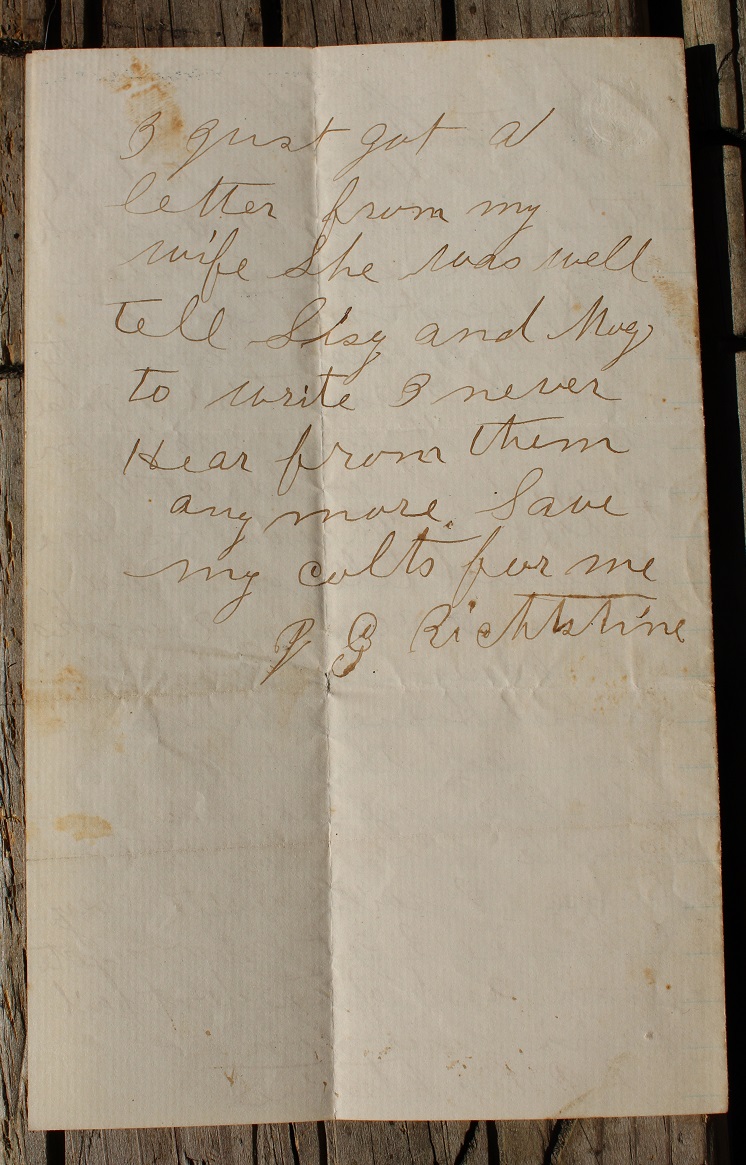 I gust got a
letter from my
wife She was well
tell Sisy and Mog
to write I never
Hear from them
any more. Save
my colts for me
P B Richtstine